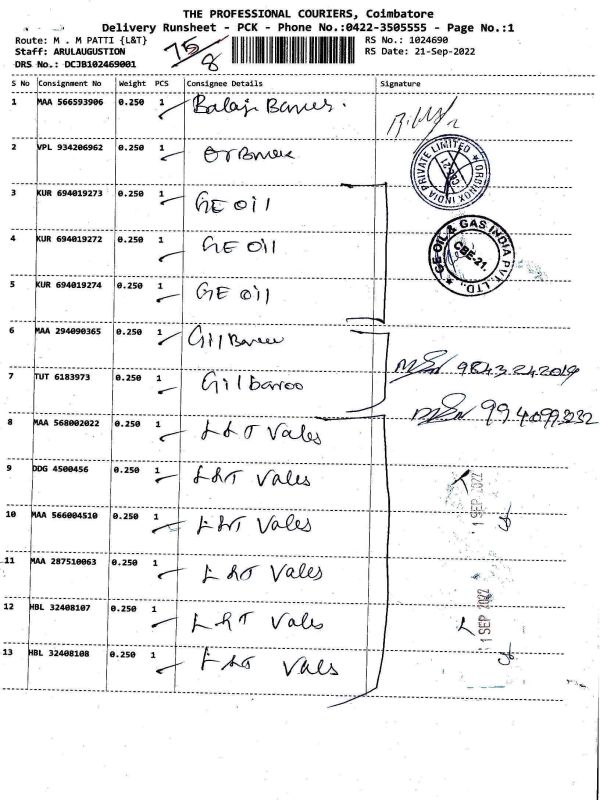 THE PROFESSIONAL COURIERS, Coimbatore
Delivery Runsheet - PCK - Phone No.:0422-3505555 - Page No.:1
Route: M . M PATTI {L&T} RS No.: 1024690
Staff: ARULAUGUSTION RS Date: 21-Sep-2022
DRS No.: DCJB102469001
75/8
S No Consignment No Weight PCS Consignee Details Signature
1 MAA 566593906 0.250 1 Balaji
2 VPL 934206962 0.250 1
ORBINOX INDIA PRIVATE LIMITED
3 KUR 694019273 0.250 1 GE OIL
4 KUR 694019272 0.250 1 GE OIL
GE OIL & GAS INDIA PVT. LTD., CBE-21.
5 KUR 694019274 0.250 1 GE OIL
6 MAA 294090365 0.250 1
9843242019
7 TUT 6183973 0.250 1 Gilbaroo
8 MAA 568002022 0.250 1 L&T Vales
9 DDG 4500456 0.250 1 L&T Vales
10 MAA 566004510 0.250 1 L&T Vales
1 SEP 2022
11 MAA 287510063 0.250 1 L&T Vales
12 HBL 32408107 0.250 1 L&T Vales
1 SEP 2022
13 HBL 32408108 0.250 1 L&T Vals